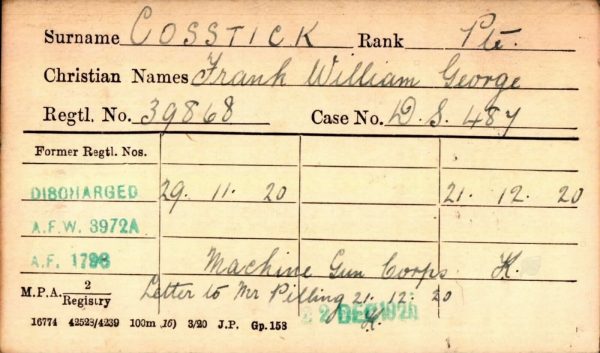 Surname COSSTICK Rank Pte.
Christian Names Frank William George
Regtl. No. 39868 Case No. D. S. 487
Former Regtl. Nos.
DISCHARGED 29. 11. 20 21. 12. 20
A.F.W. 3972A
A.F. 1796 Machine Gun Corps. K.
M.P.A. 2/Registry Letter to Mr Pilling 21. 12. 20
22 DEC 1920
16774 42523/4239 100m (6) 3/20 J.P. Gp. 153